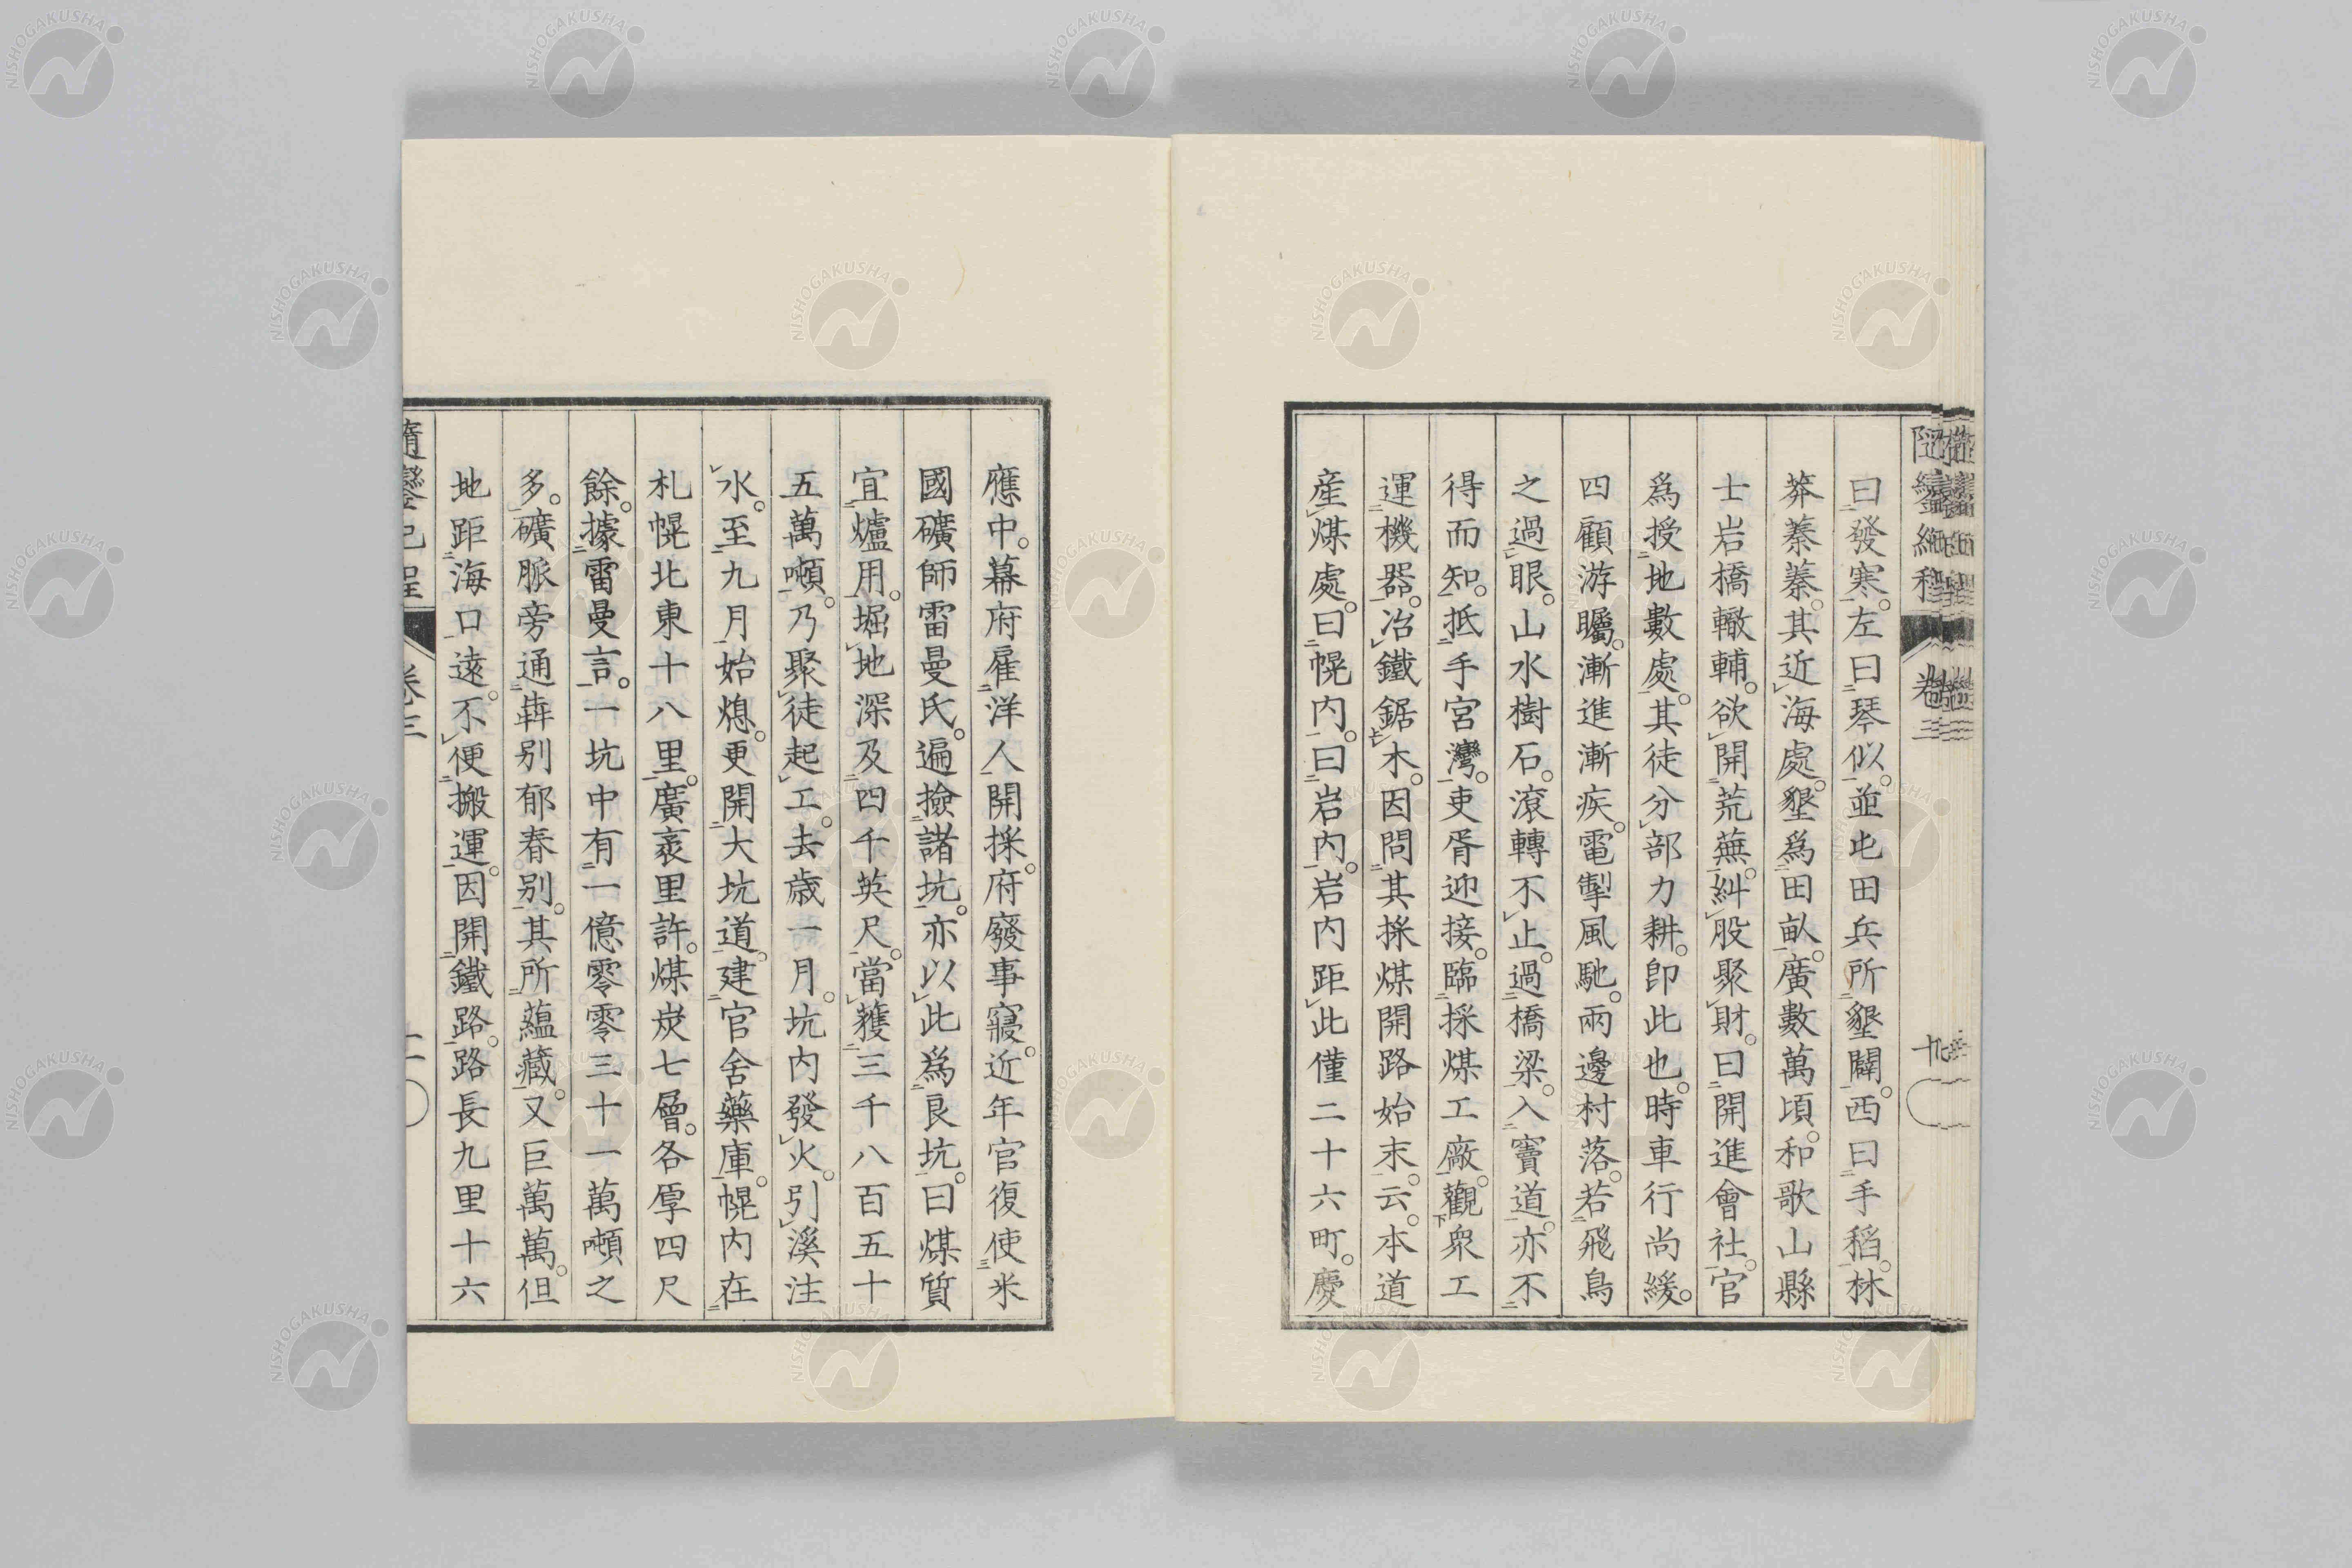 曰發寒。左曰琴似。並屯田兵所墾闢。西曰手稻。林
莽蓁蓁。其近海處。墾爲田畝。廣數萬頃。和歌山縣
士岩橋轍輔。欲開荒蕪。糾股聚財。曰開進會社。官
爲授地數處。其徒分部力耕。卽此也。時車行尚緩。
四顧游矚。漸進漸疾。電掣風馳。兩邊村落。若飛鳥
之過眼。山水樹石。滾轉不止。過橋梁。入竇道。亦不
得而知。抵手宮灣。吏胥迎接。臨採煤工廠。觀衆工
運機器。冶鐵鋸木。因問其採煤開路始末。云。本道
産煤處。曰幌内。曰岩内。岩内距此僅二十六町。慶
應中。幕府雇洋人開採。府廢事寢。近年官復使米
國礦師雷曼氏。遍撿諸坑。亦以此爲良坑。曰煤質
宜爐用。堀地深及四千英尺。當獲三千八百五十
五萬噸。乃聚徒起工。去歲一月。坑内發火。引溪注
水。至九月始熄。更開大坑道。建官舍藥庫。幌内在
札幌北東十八里。廣袤里許。煤炭七層。各厚四尺
餘。據雷曼言。一坑中有一億零零三十一萬噸之
多。礦脈旁通犇別郁春別。其所蘊藏。又巨萬萬。但
地距海口遠。不便搬運。因開鐵路。路長九里十六
隨鑾紀程 卷三 二〇
NISHOGAKUSHA